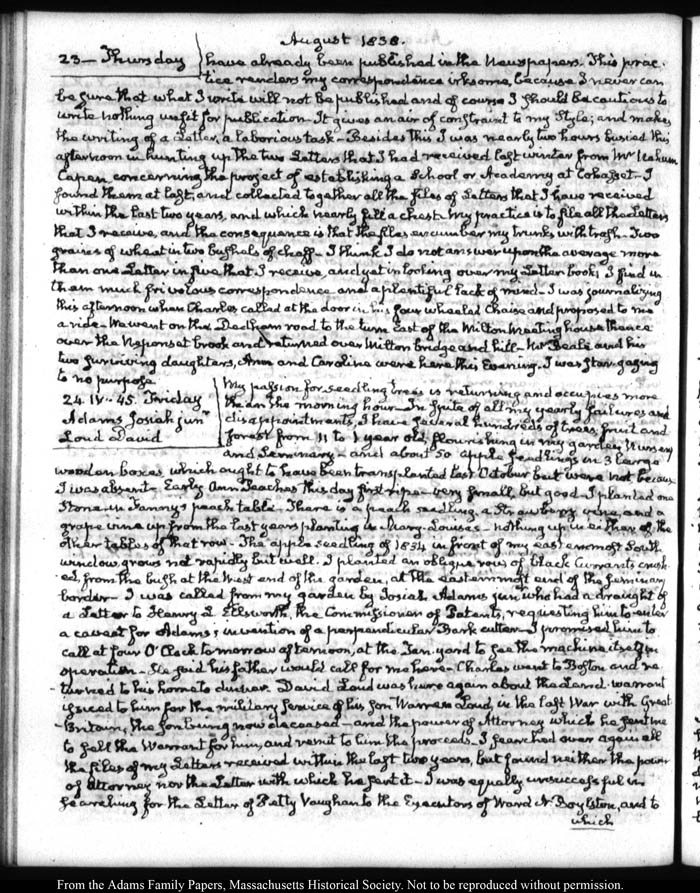 August 1838.
23 — Thursday
have already been published in the Newspapers. This prac-
tice renders my correspondence irksome, because I never can
be sure that what I write will not be published and of course I should be cautious to
write nothing unfit for publication. It gives an air of constraint to my Style; and makes
the writing of a Letter, a laborious task — Besides this I was nearly two hours busied this
afternoon in hunting up the two Letters that I had received last winter from Mr Nahum
Capen, concerning the project of establishing a School or Academy at Cohasset — I
found them at last, and collected together all the files of Letters that I have received
within the last two years, and which nearly fill a chest. My practice is to file all the letters
that I receive, and the consequence is that the files encumber my trunks with trash — Two
grains of wheat in two bushels of chaff — I think I do not answer upon the average more
than one Letter in five that I receive, and yet in looking over my Letter books, I find in
them much frivolous correspondence and a plentiful lack of mind — I was journalizing
this afternoon when Charles called at the door in his four wheeled Chaise and proposed to me
a ride — We went on the Dedham road to the turn east of the Milton meeting house thence
over the Neponset brook and returned over Milton bridge and hill — Mr Beale and his
two surviving daughters, Ann and Caroline were here this Evening. I was star-gazing
to no purpose.
24. IV - 45. Friday
Adams Josiah junr
Loud David
My passion for seedling trees is returning and occupies more
than the morning hour — In spite of all my yearly failures and
disappointments, I have several hundreds of trees, fruit and
forest from 11 to 1 year old, flourishing in my garden, Nursery
and Seminary — and about 50 apple seedlings in 3 large
wooden boxes, which ought to have been transplanted last October but were not because
I was absent — Early Ann Peaches this day first ripe — very small, but good — I planted one
Stone in Fanny's peach table — There is a peach seedling, a Strawberry vine, and a
grape vine up from the last years planting in Mary-Louisa's — nothing up in either of the
other tables of that row — The apple seedling of 1834 in front of my easternmost South
window grows not rapidly but well. I planted an oblique row of black Currants crush-
ed, from the bush at the West end of the garden, at the easternmost end of the Seminary
border — I was called from my garden by Josiah Adams jun who had a draught of
a Letter to Henry L Ellsworth, the Commissioner of Patents, requesting him to enter
a caveat for Adams's invention of a perpendicular Bark cutter — I promised him to
call at four O'Clock to morrow afternoon, at the Tan-yard to see the machine itself in
operation — He said his father would call for me here — Charles went to Boston and re-
turned to his home to dinner. David Loud was here again about the Land-warrant
issued to him for the military service of his son Warren Loud, in the last War with Great
Britain, the son being now deceased — and the power of Attorney which he sent me
to sell the Warrant for him, and remit to him the proceeds — I searched over again all
the files of my Letters received within the last two years, but found neither the power
of Attorney nor the Letter with which he sent it — I was equally unsuccessful in
searching for the Letter of Petty Vaughan to the Executors of Ward N. Boylston, and to
which
From the Adams Family Papers, Massachusetts Historical Society. Not to be reproduced without permission.